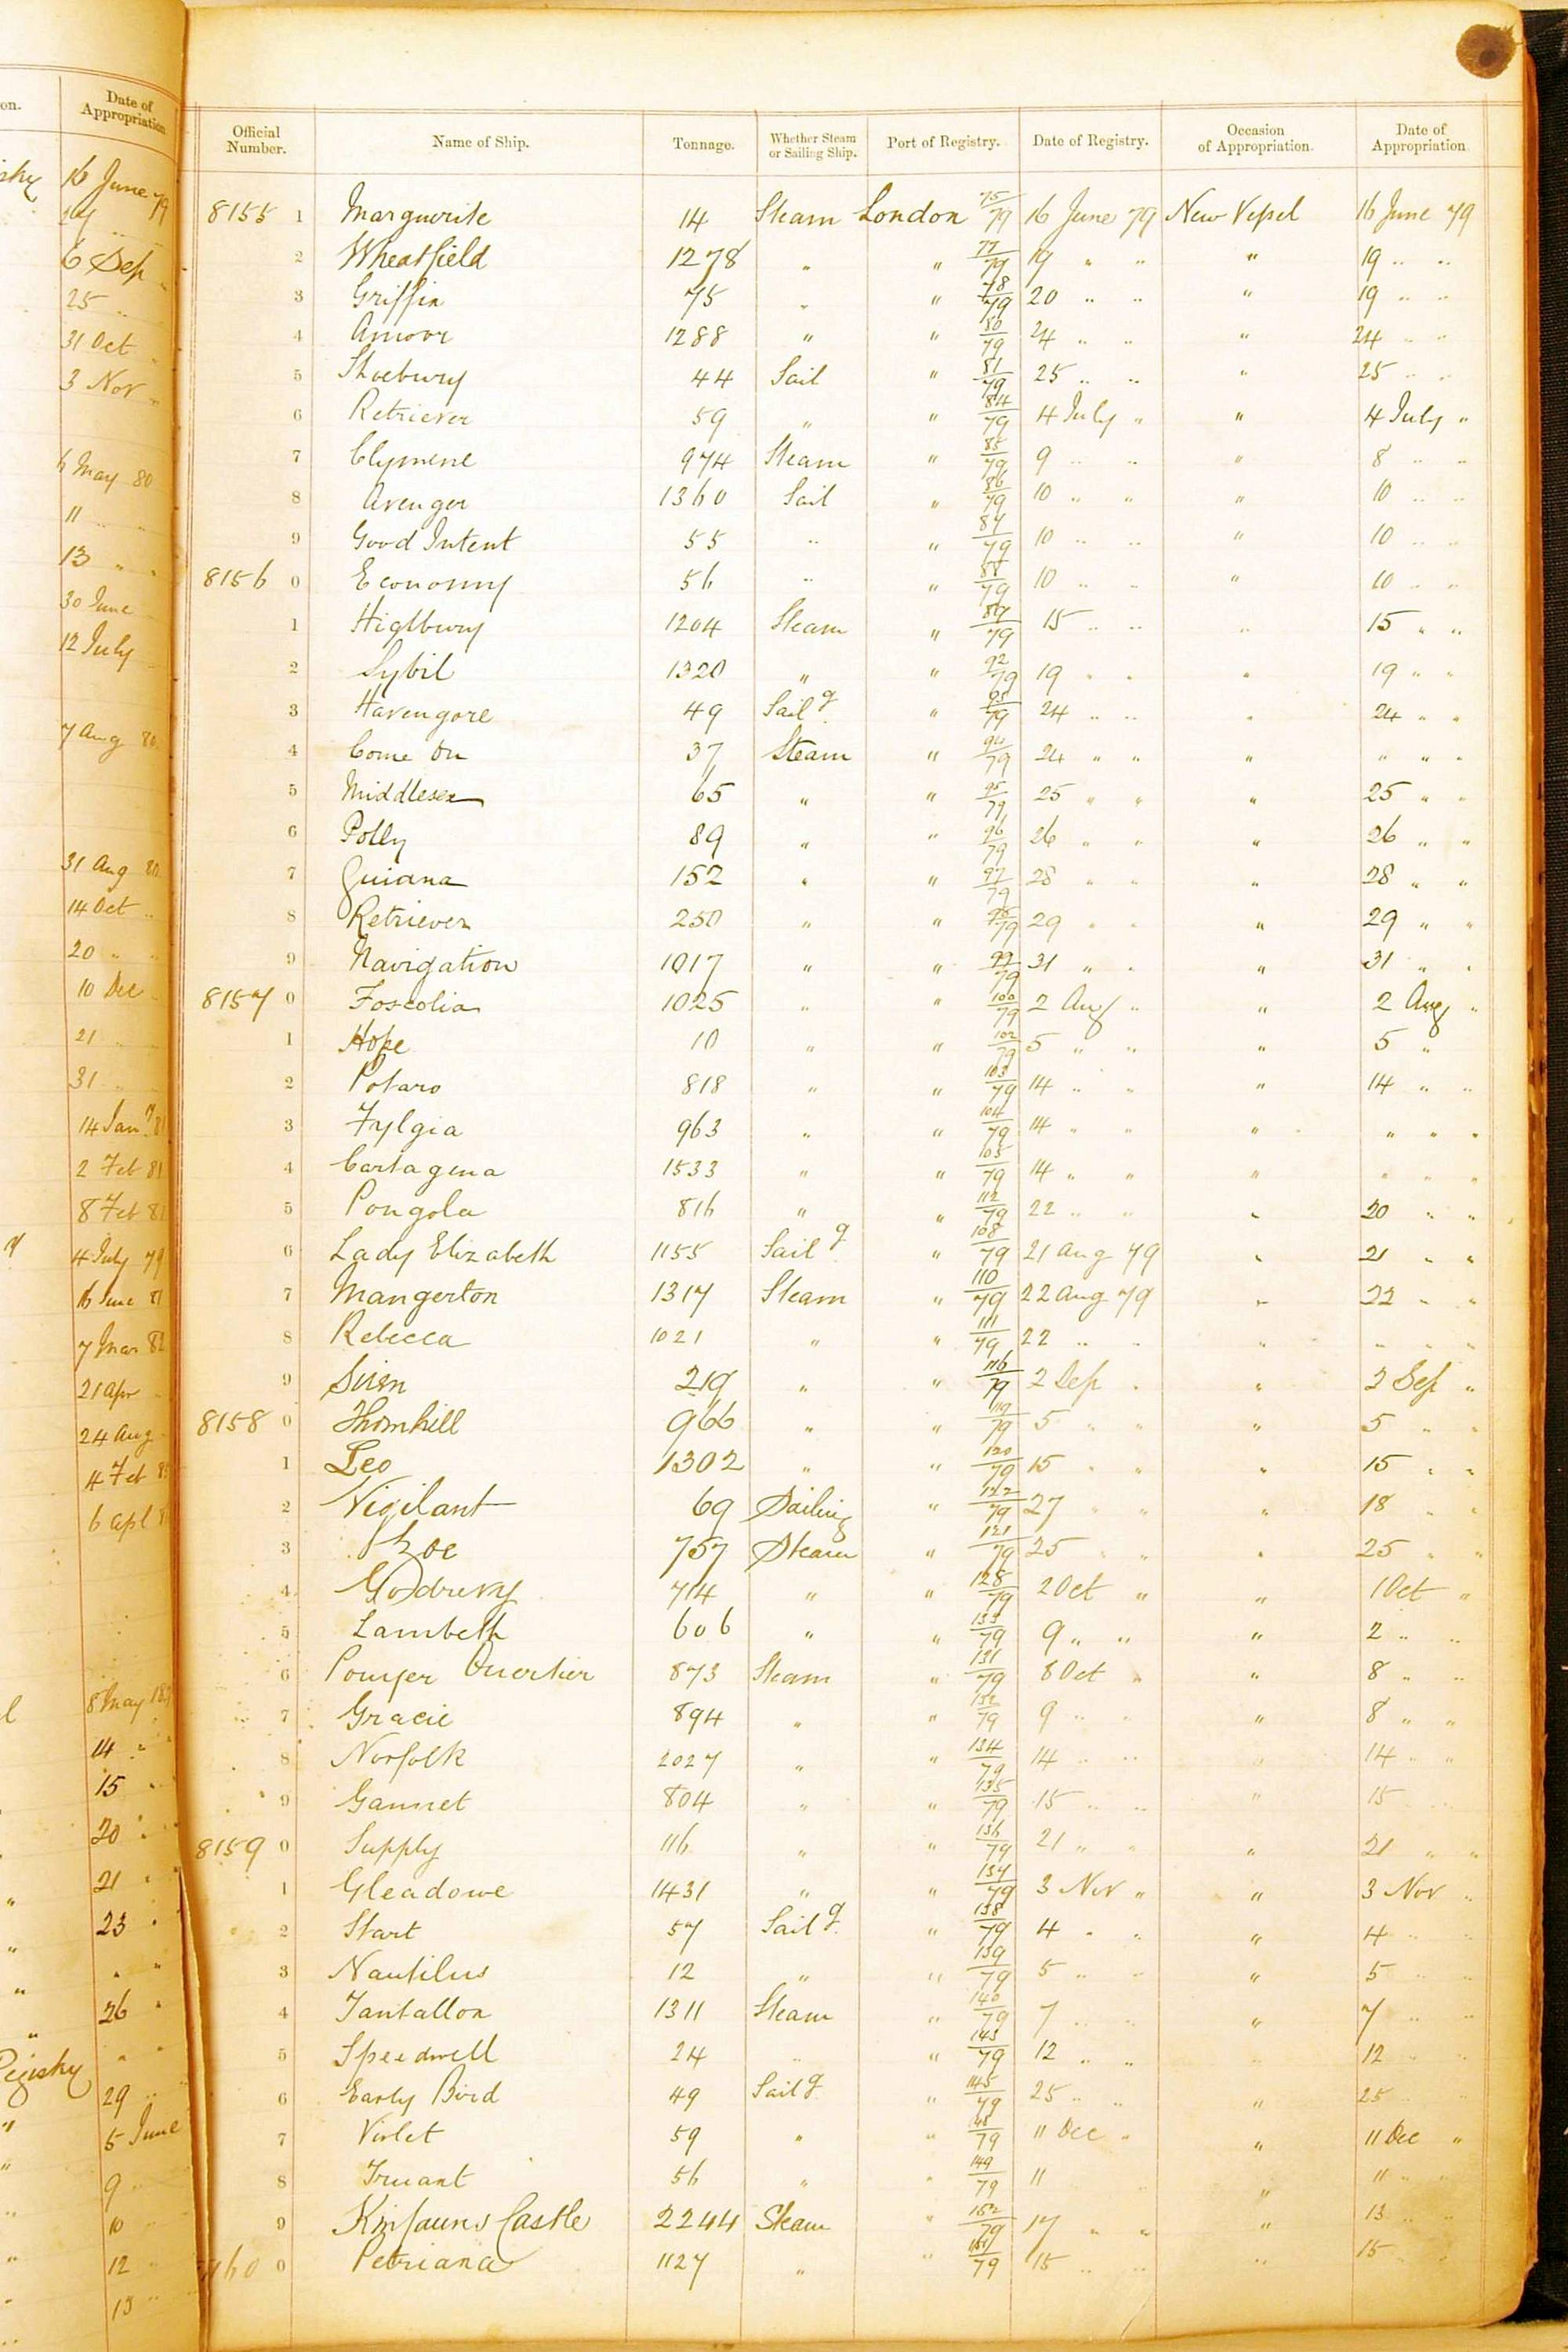 on.
Date of Appropriation
16 June 79
6 Sep
25 "
31 Oct "
3 Nov "
6 May 80
11 " "
13 " "
30 June
12 July
7 Aug 80
31 Aug 80
14 Oct "
20 " "
10 Dec "
21 " "
31 " "
14 Jany 81
2 Feb 81
8 Feb 81
4 July 79
16 June 81
7 Mar 82
21 Apr "
24 Aug "
4 Feb
6 Apl
8 May
14 "
15 "
20 "
21 "
" 23 "
" " "
" 26 "
" " "
29 "
" 5 June
" 9 "
10 "
" 12 "
13 "
Official Number. Name of Ship. Tonnage. Whether Steam or Sailing Ship. Port of Registry. Date of Registry. Occasion of Appropriation. Date of Appropriation
8155 1 Marguerite 14 Steam London 75/79 16 June 79 New Vessel 16 June 79
2 Wheatfield 1278 " " 77/79 19 " " " 19 " "
3 Griffin 75 " " 78/79 20 " " " 19 " "
4 Amoor 1288 " " 80/79 24 " " " 24 " "
5 Shoebury 44 Sail " 81/79 25 " " " 25 " "
6 Retriever 59 " " 84/79 4 July " " 4 July "
7 Clymene 974 Steam " 85/79 9 " " " 8 " "
8 Avenger 1360 Sail " 86/79 10 " " " 10 " "
9 Good Intent 55 " " 87/79 10 " " " 10 " "
8156 0 Economy 56 " " 88/79 10 " " " 10 " "
1 Higlbury 1204 Steam " 89/79 15 " " " 15 " "
2 Sybil 1320 " " 92/79 19 " " " 19 " "
3 Havengore 49 Sailg " /79 24 " " " 24 " "
4 Come On 37 Steam " 94/79 24 " " " " " "
5 Middlesex 65 " " 95/79 25 " " " 25 " "
6 Polly 89 " " 96/79 26 " " " 26 " "
7 Quiana 152 " " 97/79 28 " " " 28 " "
8 Retriever 250 " " 98/79 29 " " " 29 " "
9 Navigation 1017 " " 99/79 31 " " " 31 " "
8157 0 Foscolia 1025 " " 100/79 2 Aug " " 2 Aug "
1 Hope 10 " " 102/79 5 " " " 5 "
2 Potaro 818 " " 103/79 14 " " " 14 " "
3 Fylgia 963 " " 104/79 14 " " " " " "
4 Cartagena 1533 " " 105/79 14 " " " " " "
5 Pongola 816 " " 112/79 22 " " " 20 " "
6 Lady Elizabeth 1155 Sailg " 108/79 21 Aug 79 " 21 " "
7 Mangerton 1317 Steam " 110/79 22 Aug 79 " 22 " "
8 Rebecca 1021 " " 111/79 22 " " " " " "
9 Siren 219 " " 116/79 2 Sep " " 2 Sep "
8158 0 Thornhill 966 " " 119/79 5 " " " 5 " "
1 Leo 1302 " " 120/79 15 " " " 15 " "
2 Vigilant 69 Sailing " 122/79 27 " " " 18 " "
3 Zoe 757 Steam " 121/79 25 " " " 25 " "
4 Godrevy 714 " " 128/79 2 Oct " " 1 Oct "
5 Lambeth 606 " " 133/79 9 " " " 2 " "
6 Pouyer Quertier 873 Steam " 131/79 8 Oct " " 8 " "
7 Gracie 894 " " 132/79 9 " " " 8 " "
8 Norfolk 2027 " " 134/79 14 " " " 14 " "
9 Gannet 804 " " 135/79 15 " " " 15 " "
8159 0 Supply 116 " " 136/79 21 " " " 21 " "
1 Gleadowe 1431 " " 137/79 3 Nov " " 3 Nov "
2 Start 57 Sailg " 138/79 4 " " " 4 " "
3 Nautilus 12 " " 139/79 5 " " " 5 " "
4 Tantallon 1311 Steam " 140/79 7 " " " 7 " "
5 Speedwell 24 " " 143/79 12 " " " 12 " "
6 Early Bird 49 Sailg " 145/79 25 " " " 25 "
7 Violet 59 " " /79 11 Dec " " 11 Dec "
8 Truant 56 " " 149/79 11 " 11 " "
9 Kinfauns Castle 2244 Steam " 152/79 17 " " " 13 " "
60 0 Petriana 1127 " " /79 15 " " " 15 "